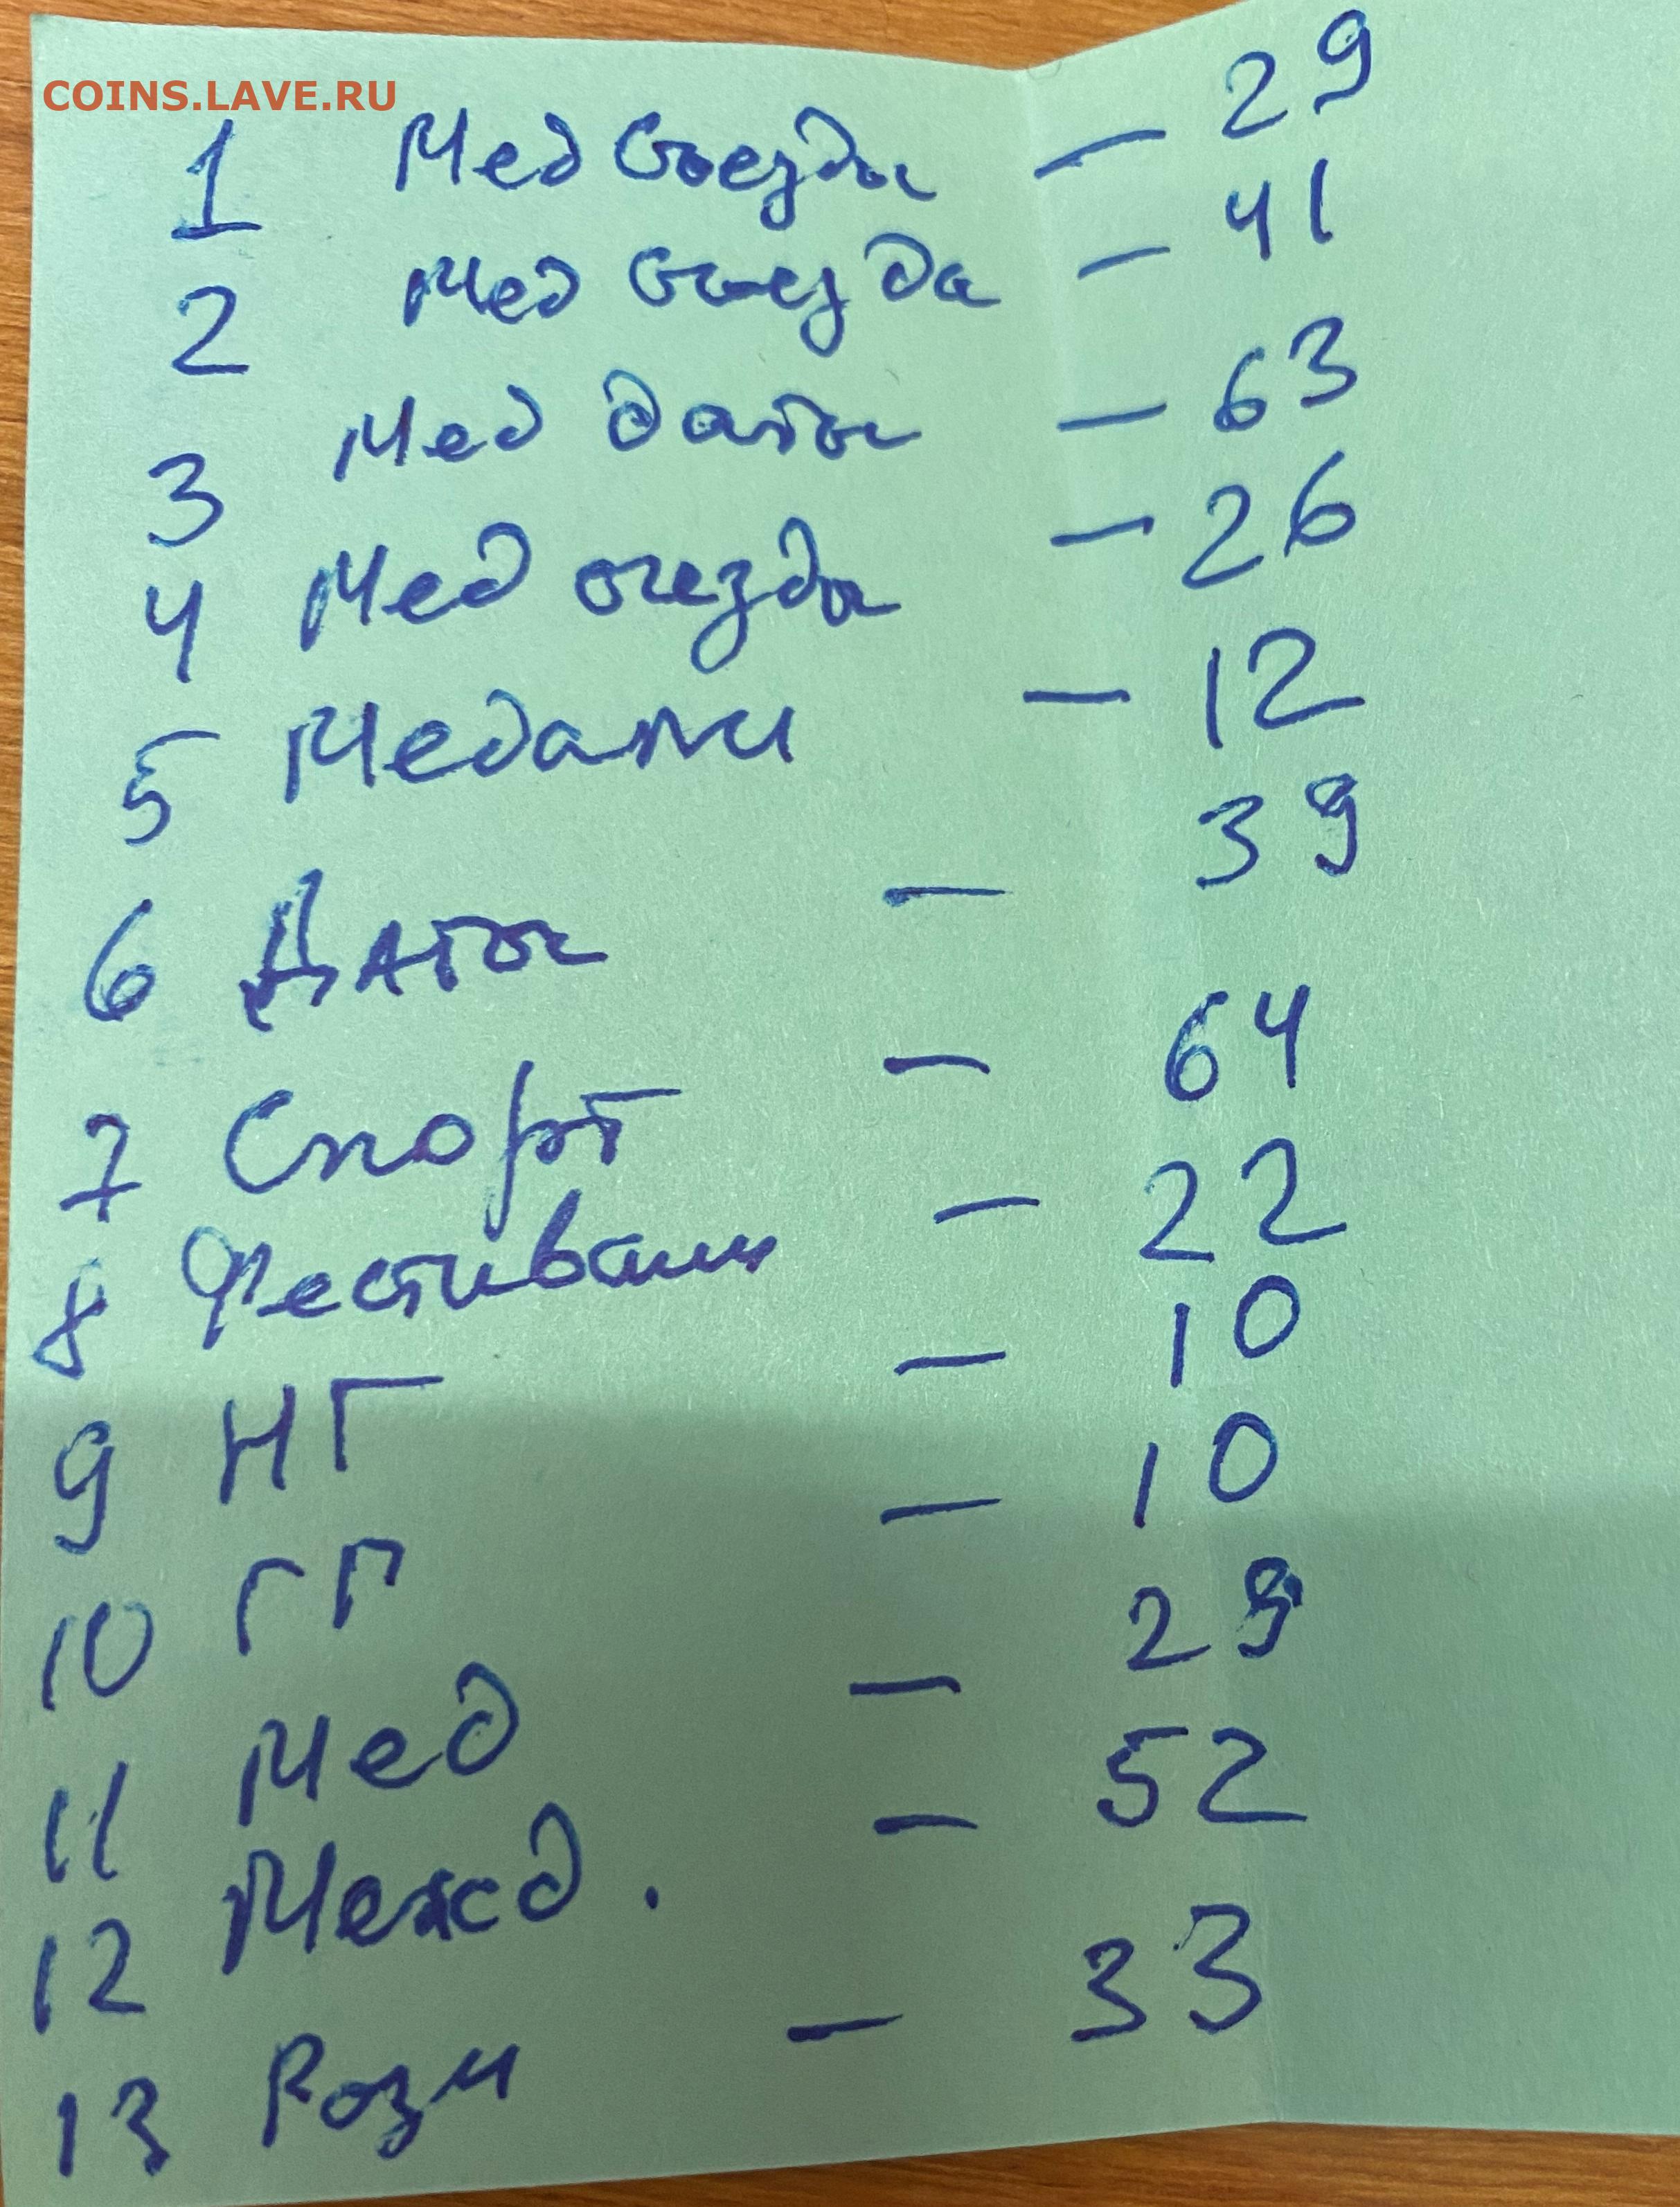 COINS.LAVE.RU
1 Мед Съезды — 29
2 Мед съезда — 41
3 Мед даты — 63
4 Мед съезды — 26
5 Медали — 12
6 Даты — 39
7 Спорт — 64
8 Фестивали — 22
9 НГ — 10
10 ГП — 10
11 Мед — 29
12 Межд. — 52
13 Разн — 33